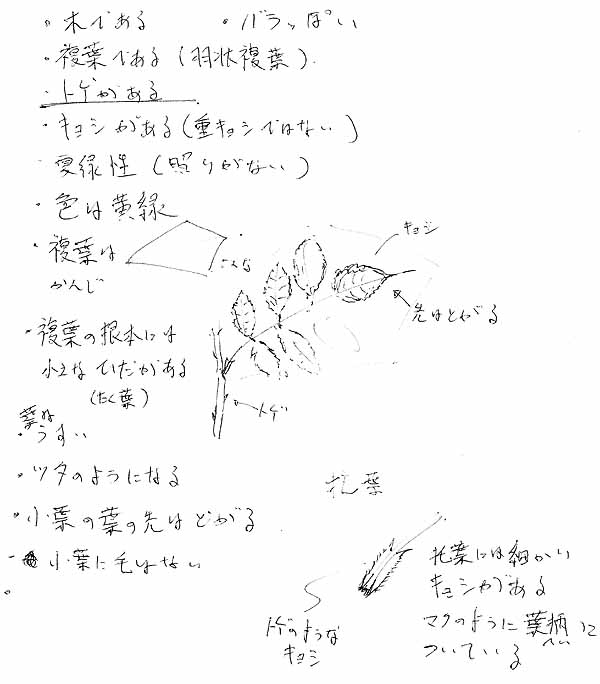 ・木である ・バラっぽい
・複葉である(羽状複葉).
・トゲがある
・キョシがある(重キョシではない)
・夏緑性(照りがない)
・色は黄緑
・複葉は こんな
かんじ
キョシ
先はとがる
・複葉の根本には
小さなひだがある
(たく葉)
トゲ
葉は
・うすい
・ツタのようになる
托葉
・小葉の葉の先はとがる
・小葉に毛はない
托葉には細かい
キョシがある
マクのように葉柄に
ついている
トゲのような
キョシ